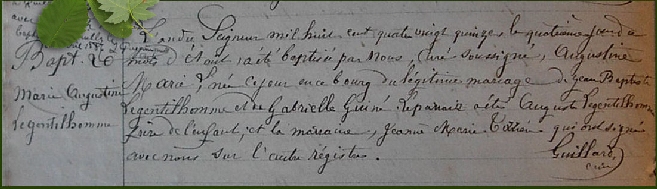 Bapt. de
Marie Augustine
Legentilhomme
L'an du Seigneur mil huit cent quatre vingt quinze, le quatrième jour du
mois d'Août a été baptisée par Nous, Curé soussigné, Augustine
Marie, née ce jour en ce bourg du légitime mariage de Jean Baptiste
Legentilhomme et de Gabrielle Guiné. Le parrain a été Auguste Legentilhomme
frère de l'enfant, et la marraine, Jeanne Marie qui ont signé
avec nous sur l'autre régistre.
Guillard,